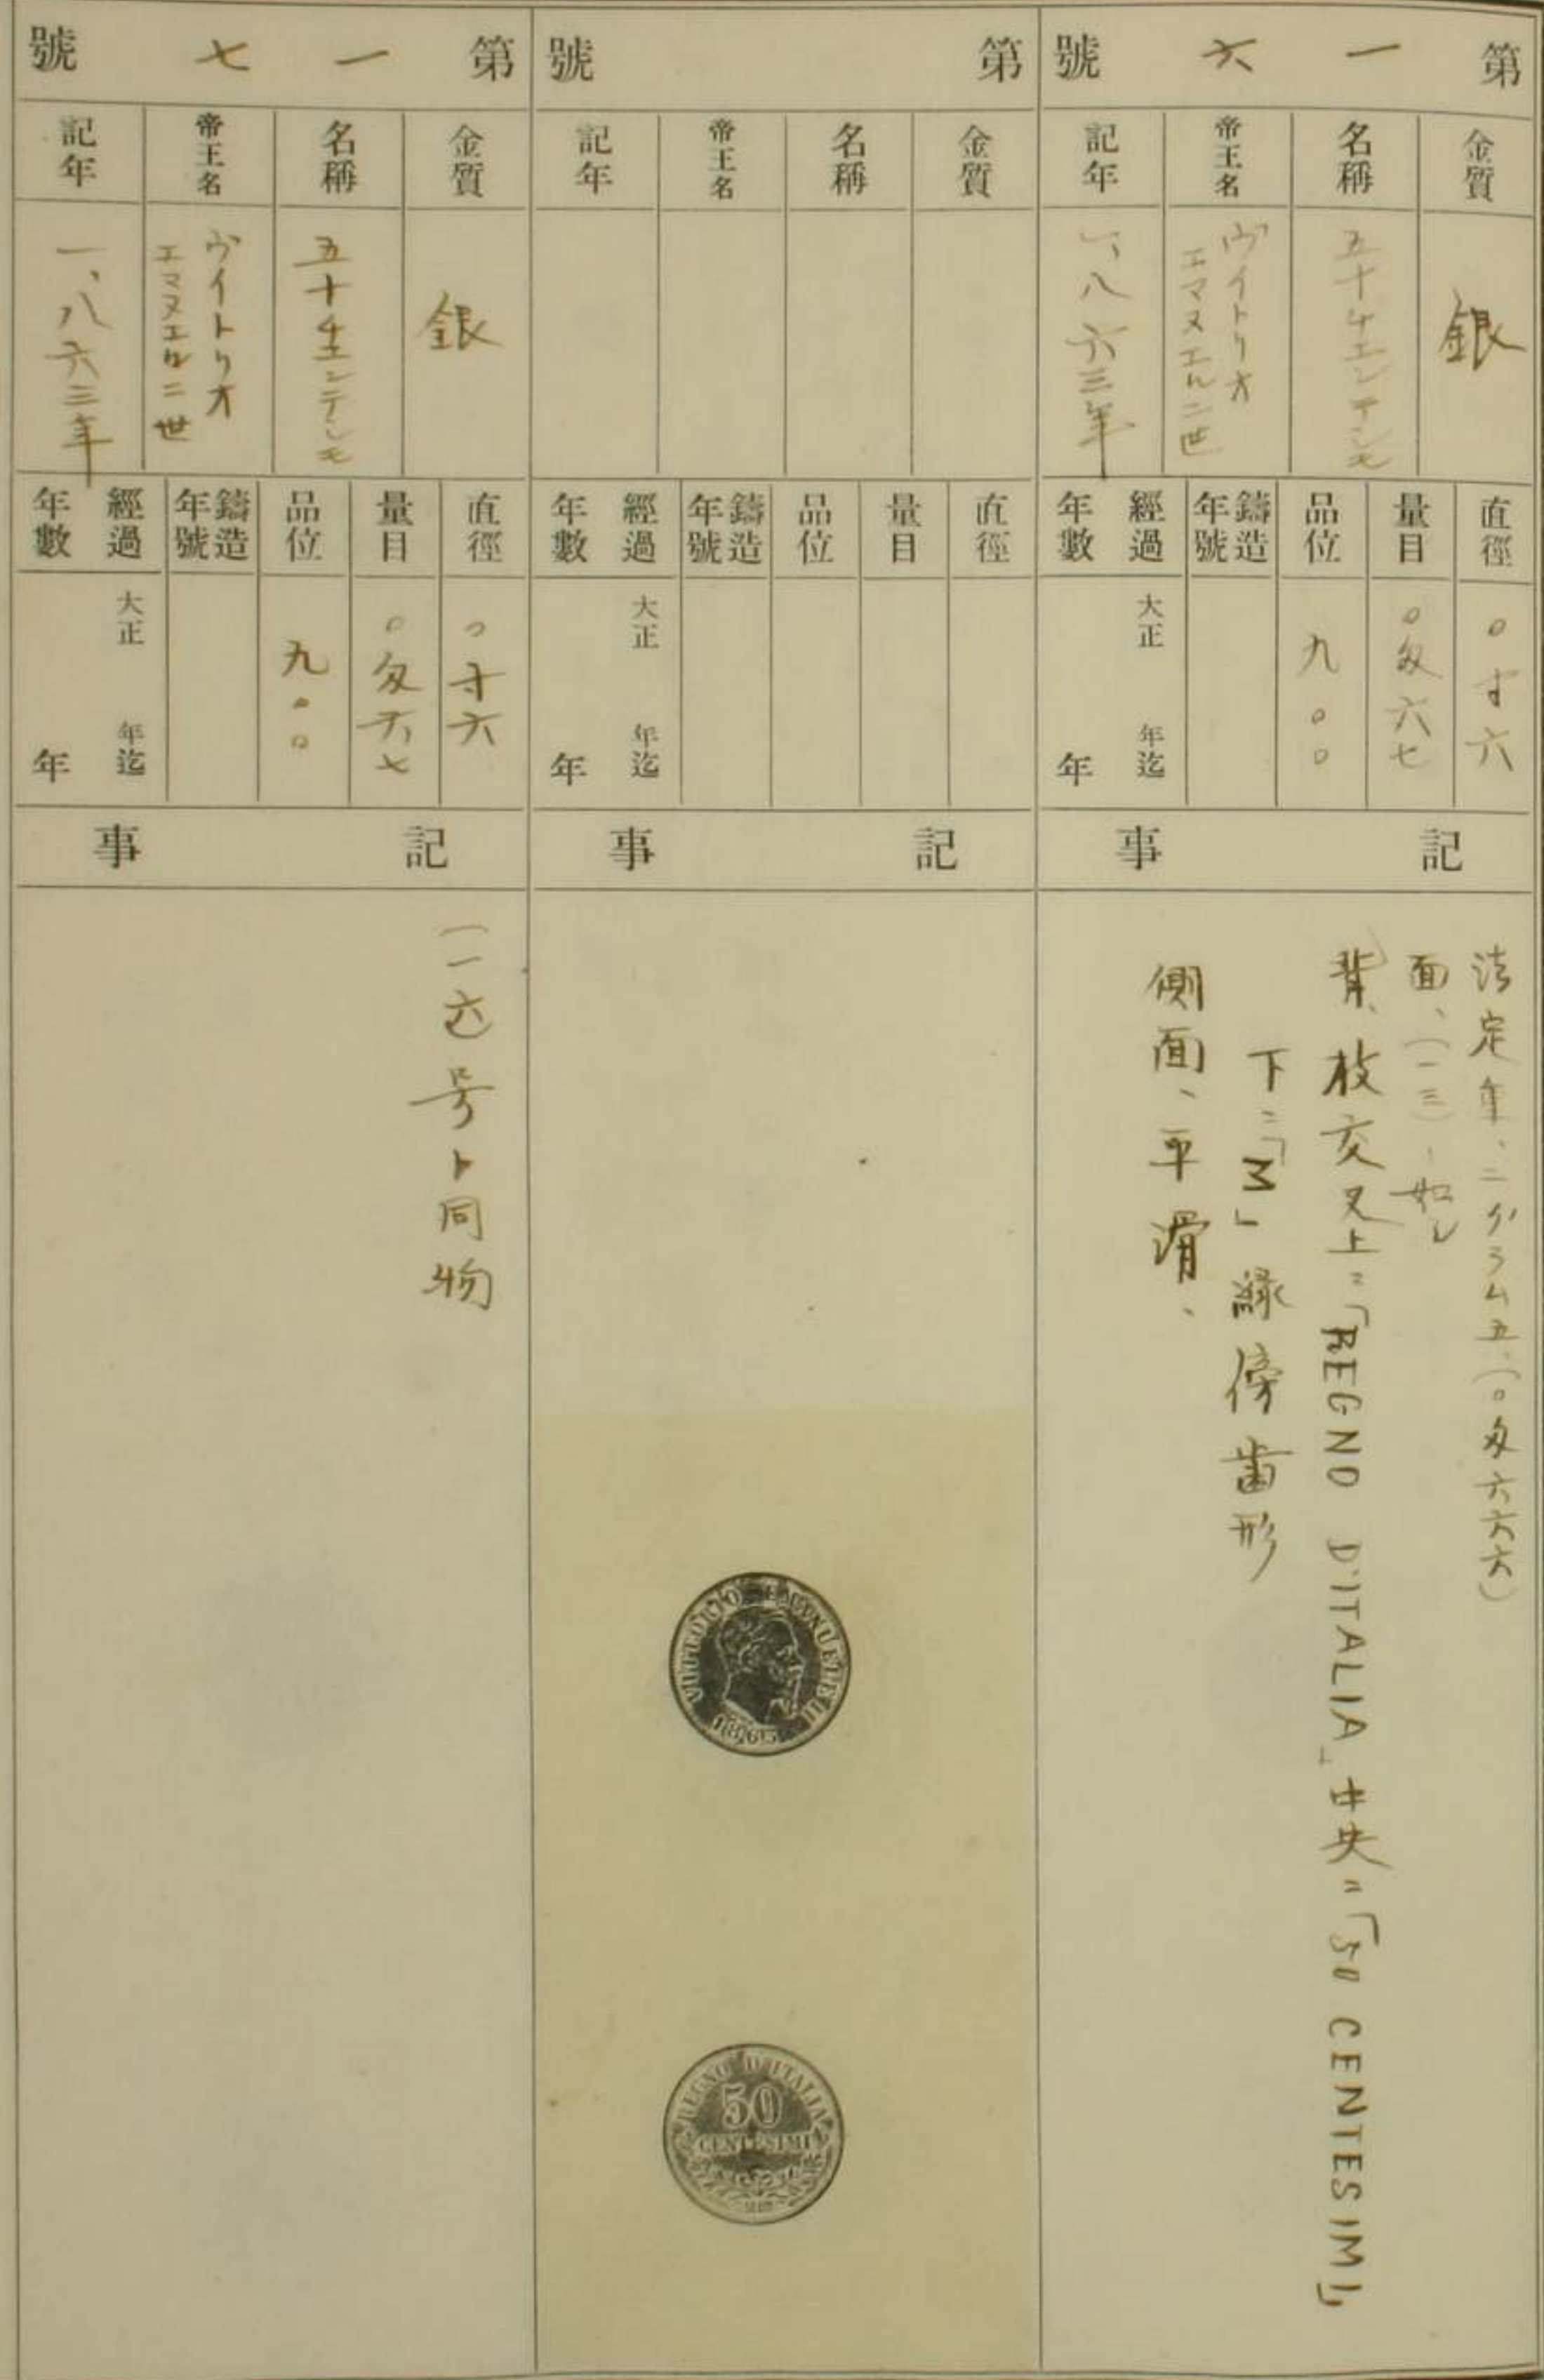 第一六號
金質
銀
名稱
五十チエンテシモ
帝王名
ヴイトリオ
エマヌエル二世
記年
一、八六三年
直徑
〇寸六
量目
〇匁六七
品位
九〇〇
鑄造
年號
經過
年數
大正 年迄
年
記事
法定量、二グラム五、(〇匁六六六)
面、(一三)ノ如シ
背、枝交叉上ニ「REGNO D'ITALIA」中央ニ「50 CENTESIMI」
下ニ「M」緣傍齒形
側面、平滑、
第 號
金質
名稱
帝王名
記年
直徑
量目
品位
鑄造
年號
經過
年數
大正 年迄
年
記事
VITTORIO EMANUELE II
1863
REGNO D'ITALIA
50
CENTESIMI
第一七號
金質
銀
名稱
五十チエンテシモ
帝王名
ヴイトリオ
エマヌエル二世
記年
一、八六三年
直徑
〇寸六
量目
〇匁六七
品位
九〇〇
鑄造
年號
經過
年數
大正 年迄
年
記事
(一六)号ト同物